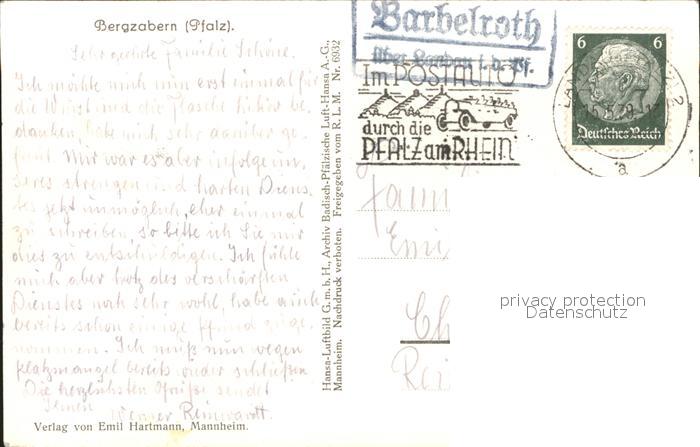 Bergzabern (Pfalz).
Sehr geehrte Familie Schöne.
Ich möchte mich nun erst einmal für
die Wurst und die Flasche Likör be,
danken, habe mich sehr darüber ge,
freut. Mir war es aber infolge un,
seres strengen und harten Diens,
tes jetzt unmöglich, eher einmal
zu schreiben, so bitte ich Sie mir
dies zu entschuldigen. Ich fühle
mich aber trotz des verschärften
Dienstes noch sehr wohl, habe auch
bereits schon einige Pfund zuge,
nommen. Ich muß nun wegen
platzmangel bereits wieder schließen
Die herzlichsten Grüße sendet
Ihnen
Werner Reinwardt.
Verlag von Emil Hartmann, Mannheim.
Hansa-Luftbild G. m. b. H., Archiv Badisch-Pfälzische Luft-Hansa A.-G.,
Mannheim. Nachdruck verboten. Freigegeben vom R. L. M. Nr. 6932
Barbelroth
über Landau i. d. Pf.
Im POSTAUTO
durch die
PFALZ am RHEIN
6 6
Deutsches Reich
LANDAU PFALZ 2
a
Fam
Emi
Ch
Rei
privacy protection
Datenschutz